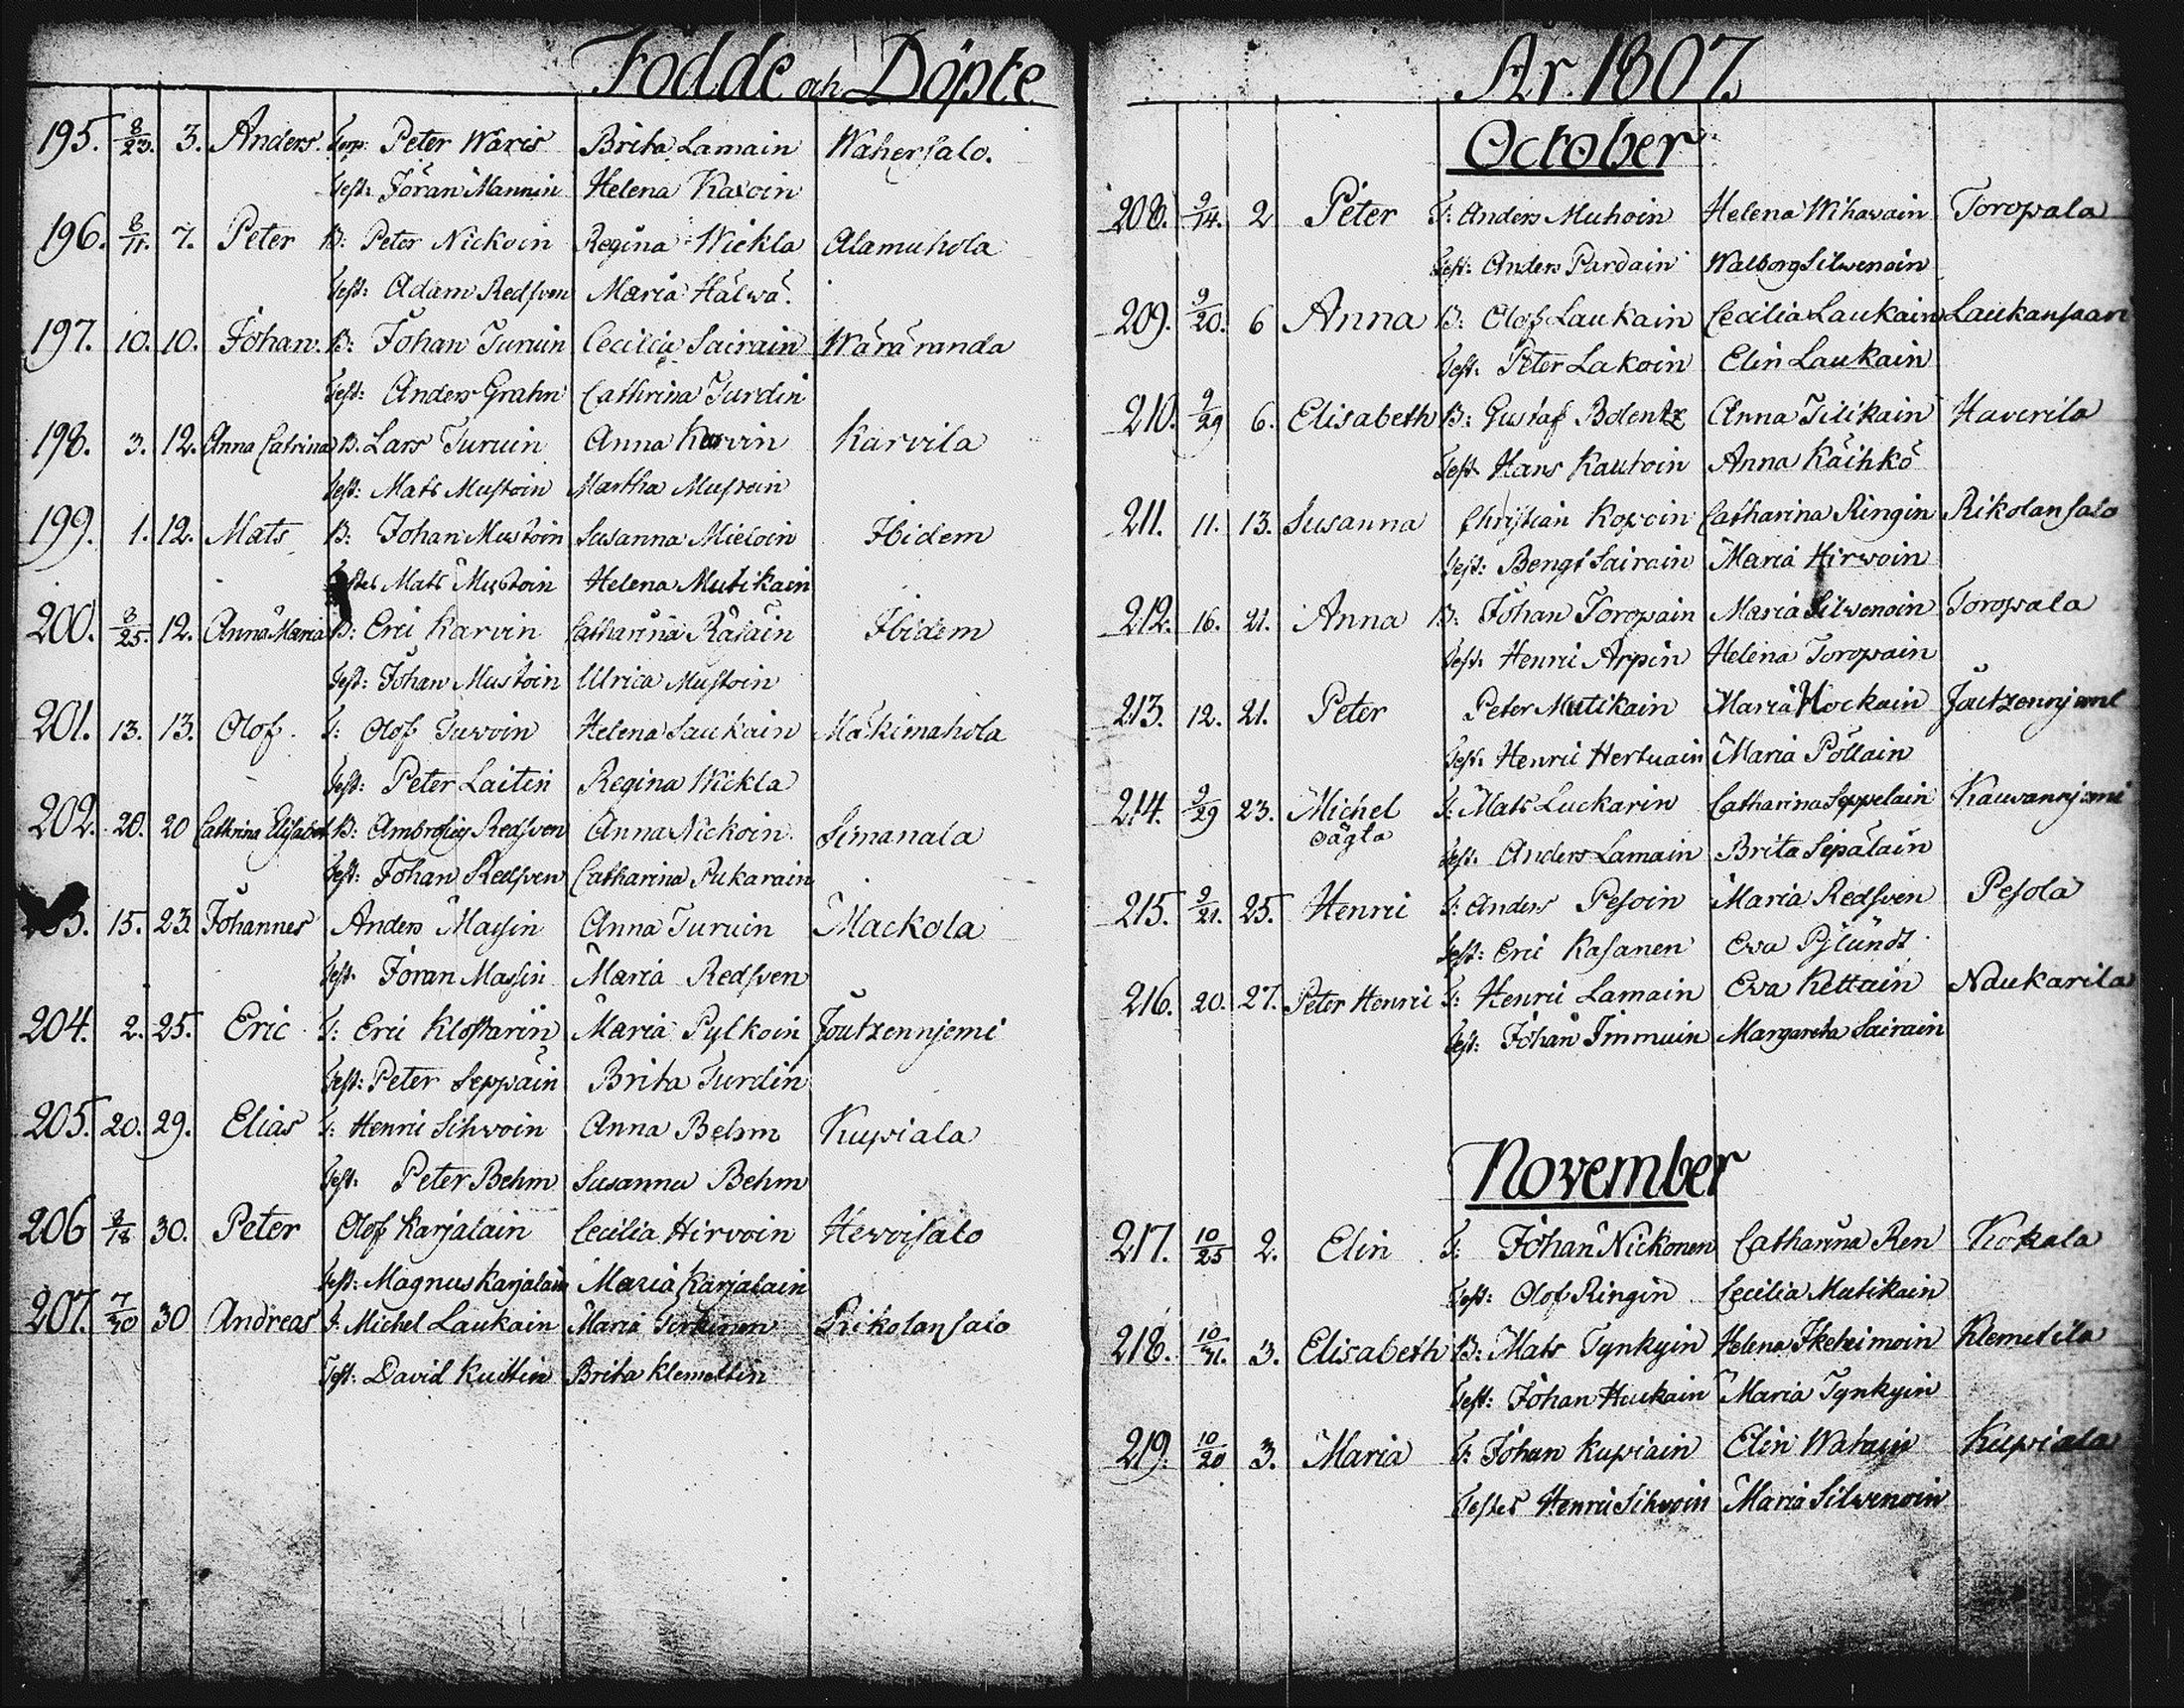 Födde och Döpte
195. 8/23. 3. Anders. Torp: Peter Wäris Brita Lamain Wahersalo.
Test: Jöran Mannin Helena Kaxoin
196. 8/11. 7. Peter B: Peter Nickoin Regina Wickla Alamuhola
Test: Adam Redsven Maria Hälwä.
197. 10. 10. Johan. B: Johan Turuin Cecilia Sairain Wäräranda
Test: Anders Grahn Cathrina Turdin
198. 3. 12. Anna Catrina B. Lars Turuin Anna Karvin Karvila
Test: Mats Mustoin Martha Mustoin
199. 1. 12. Mats B: Johan Mustoin Susanna Mieloin Ibidem
Testes Mats Mustoin Helena Mutikain
200. 8/25. 12. Anna Maria B: Eric Karvin Catharina Räsäin Ibidem
Test: Johan Mustoin Ulrica Mustoin
201. 13. 13. Olof. T: Olof Tuvoin Helena Laukain Mäkimahola
Test: Peter Laitin Regina Wickla
202. 20. 20 Cathrina Elisabet B: Ambrosius Redsven Anna Nickoin Simanala
Test: Johan Redsven Catharina Pukarain
3. 15. 23. Johannes Anders Massin Anna Turuin Mackola
Test. Jöran Massin Maria Redsven
204. 2. 25. Eric T: Eric Klostarin Maria Pylkoin Joutzennjemi
Test: Peter Seppäin Brita Turdin
205. 20. 29. Elias T: Henric Sihvoin Anna Behm Kupiala
Test. Peter Behm Susanna Behm
206 8/18 30. Peter Olof Karjalain Cecilia Hirvoin Hevoisalo
Test: Magnus Karjalain Maria Karjalain
207. 7/30 30 Andreas T. Michel Laukain Maria Rikolansalo
Test: David Kuittin Brita Klemettin
År 1807.
October
208. 9/14. 2 Peter T: Anders Muhoin Helena Wihavain Toropala
Test: Anders Pardain Walborg Silvenoin
209. 9/20. 6 Anna B: Olof Laukain Cecilia Laukain Laukansaari
Test. Peter Lakoin Elin Laukain
210. 9/29 6. Elisabeth B: Gustaf Bdentz Anna Tilikain Haverila
Test. Hans Kautoin Anna Käihkö
211. 11. 13. Susanna Christian Kopoin Catharina Ringin Rikolansalo
Test: Bengt Sairain Maria Hirvoin
212. 16. 21. Anna B: Johan Toropain Maria Silvenoin Toropala
Test. Henric Arpin Helena Toropain
213. 12. 21. Peter Peter Mutikain Maria Hockain Joutzennjemi
Test. Henric Hertuain Maria Pöllain
214. 9/29 23. Michel T: Mats Luckarin Catharina Seppelain Kauvannjemi
oägta
Test. Anders Lamain Brita Sepäläin
215. 9/21. 25. Henric T: Anders Pesoin Maria Redsven Pesola
Test: Eric Kasanen Eva
216. 20. 27. Peter Henric T: Henric Lamain Eva Kettain Naukarila
Test: Johan Immuin Margareta Sairain
November
217. 10/25 2. Elin T: Johan Nickonen Catharina Ren Kokala
Test: Olof Ringin Cecilia Mutikain
218. 10/31. 3. Elisabeth B: Mats Tynkyin Helena Ikeheimoin Klemetila
Test: Johan Huikain Maria Tynkyin
219. 10/20 3. Maria T: Johan Kupiain Elin Kupiala
Testes Henric Sihvoin Maria Silvenoin